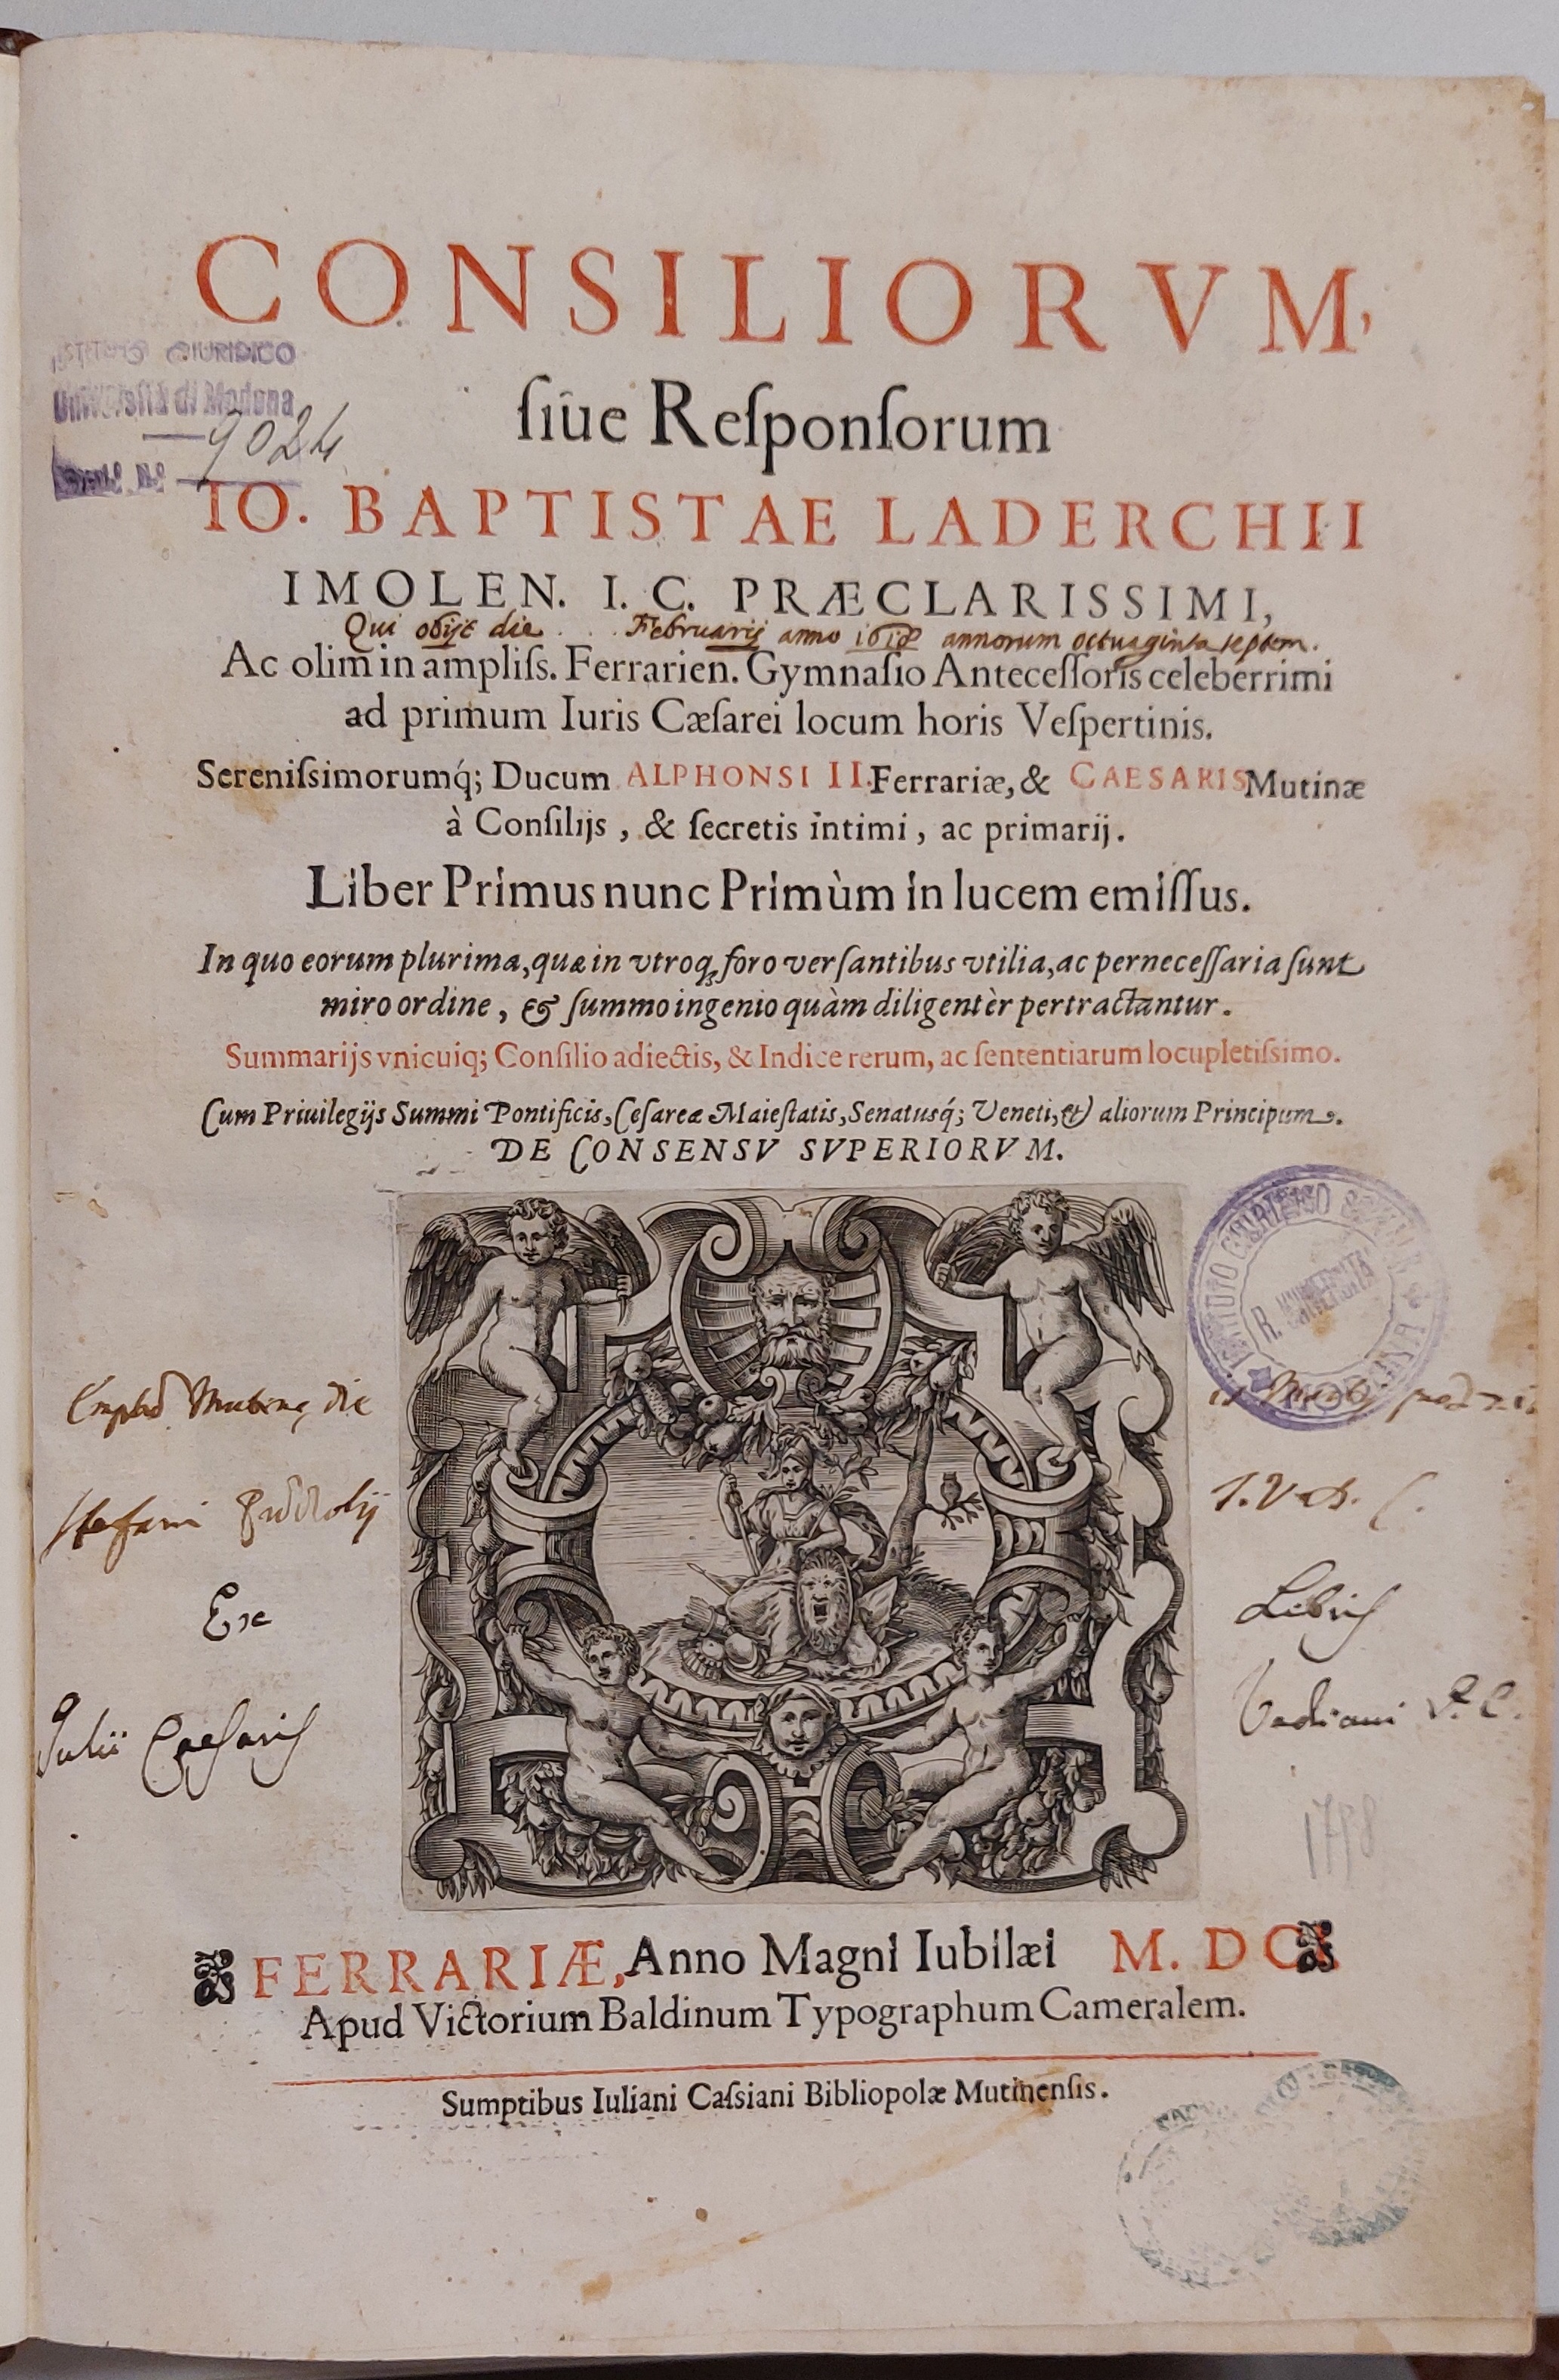 CONSILIORVM,
ISTITUTO GIURIDICO
Università di Modena
9024
Invent.º N.º
ſiue Reſponſorum
IO. BAPTISTAE LADERCHII
IMOLEN. I. C. PRÆCLARISSIMI,
Qui obijt die . . . Februarij anno 1618 annorum octuaginta septem.
Ac olim in ampliſs. Ferrarien. Gymnaſio Anteceſſoris celeberrimi
ad primum Iuris Cæſarei locum horis Veſpertinis.
Sereniſsimorumq́; Ducum ALPHONSI II. Ferrariæ, & CAESARIS Mutinæ
à Conſilijs, & ſecretis intimi, ac primarij.
Liber Primus nunc Primùm in lucem emiſſus.
In quo eorum plurima, quæ in vtroq; foro verſantibus vtilia, ac perneceſſaria ſunt
miro ordine, & ſummo ingenio quàm diligentèr pertractantur.
Summarijs vnicuiq; Conſilio adiectis, & Indice rerum, ac ſententiarum locupletiſsimo.
Cum Priuilegijs Summi Pontificis, Ceſareæ Maieſtatis, Senatusq́; Veneti, & aliorum Principum.
DE CONSENSV SVPERIORVM.
ISTITUTO GIURIDICO
R. UNIVERSITÀ
MODENA
Mutinę die
Stefani
I. V. D.
Ex Libris
Julii Caesaris Vadiani I. C.
1798
FERRARIÆ, Anno Magni Iubilæi M. DC.
Apud Victorium Baldinum Typographum Cameralem.
Sumptibus Iuliani Caſsiani Bibliopolæ Mutinenſis.